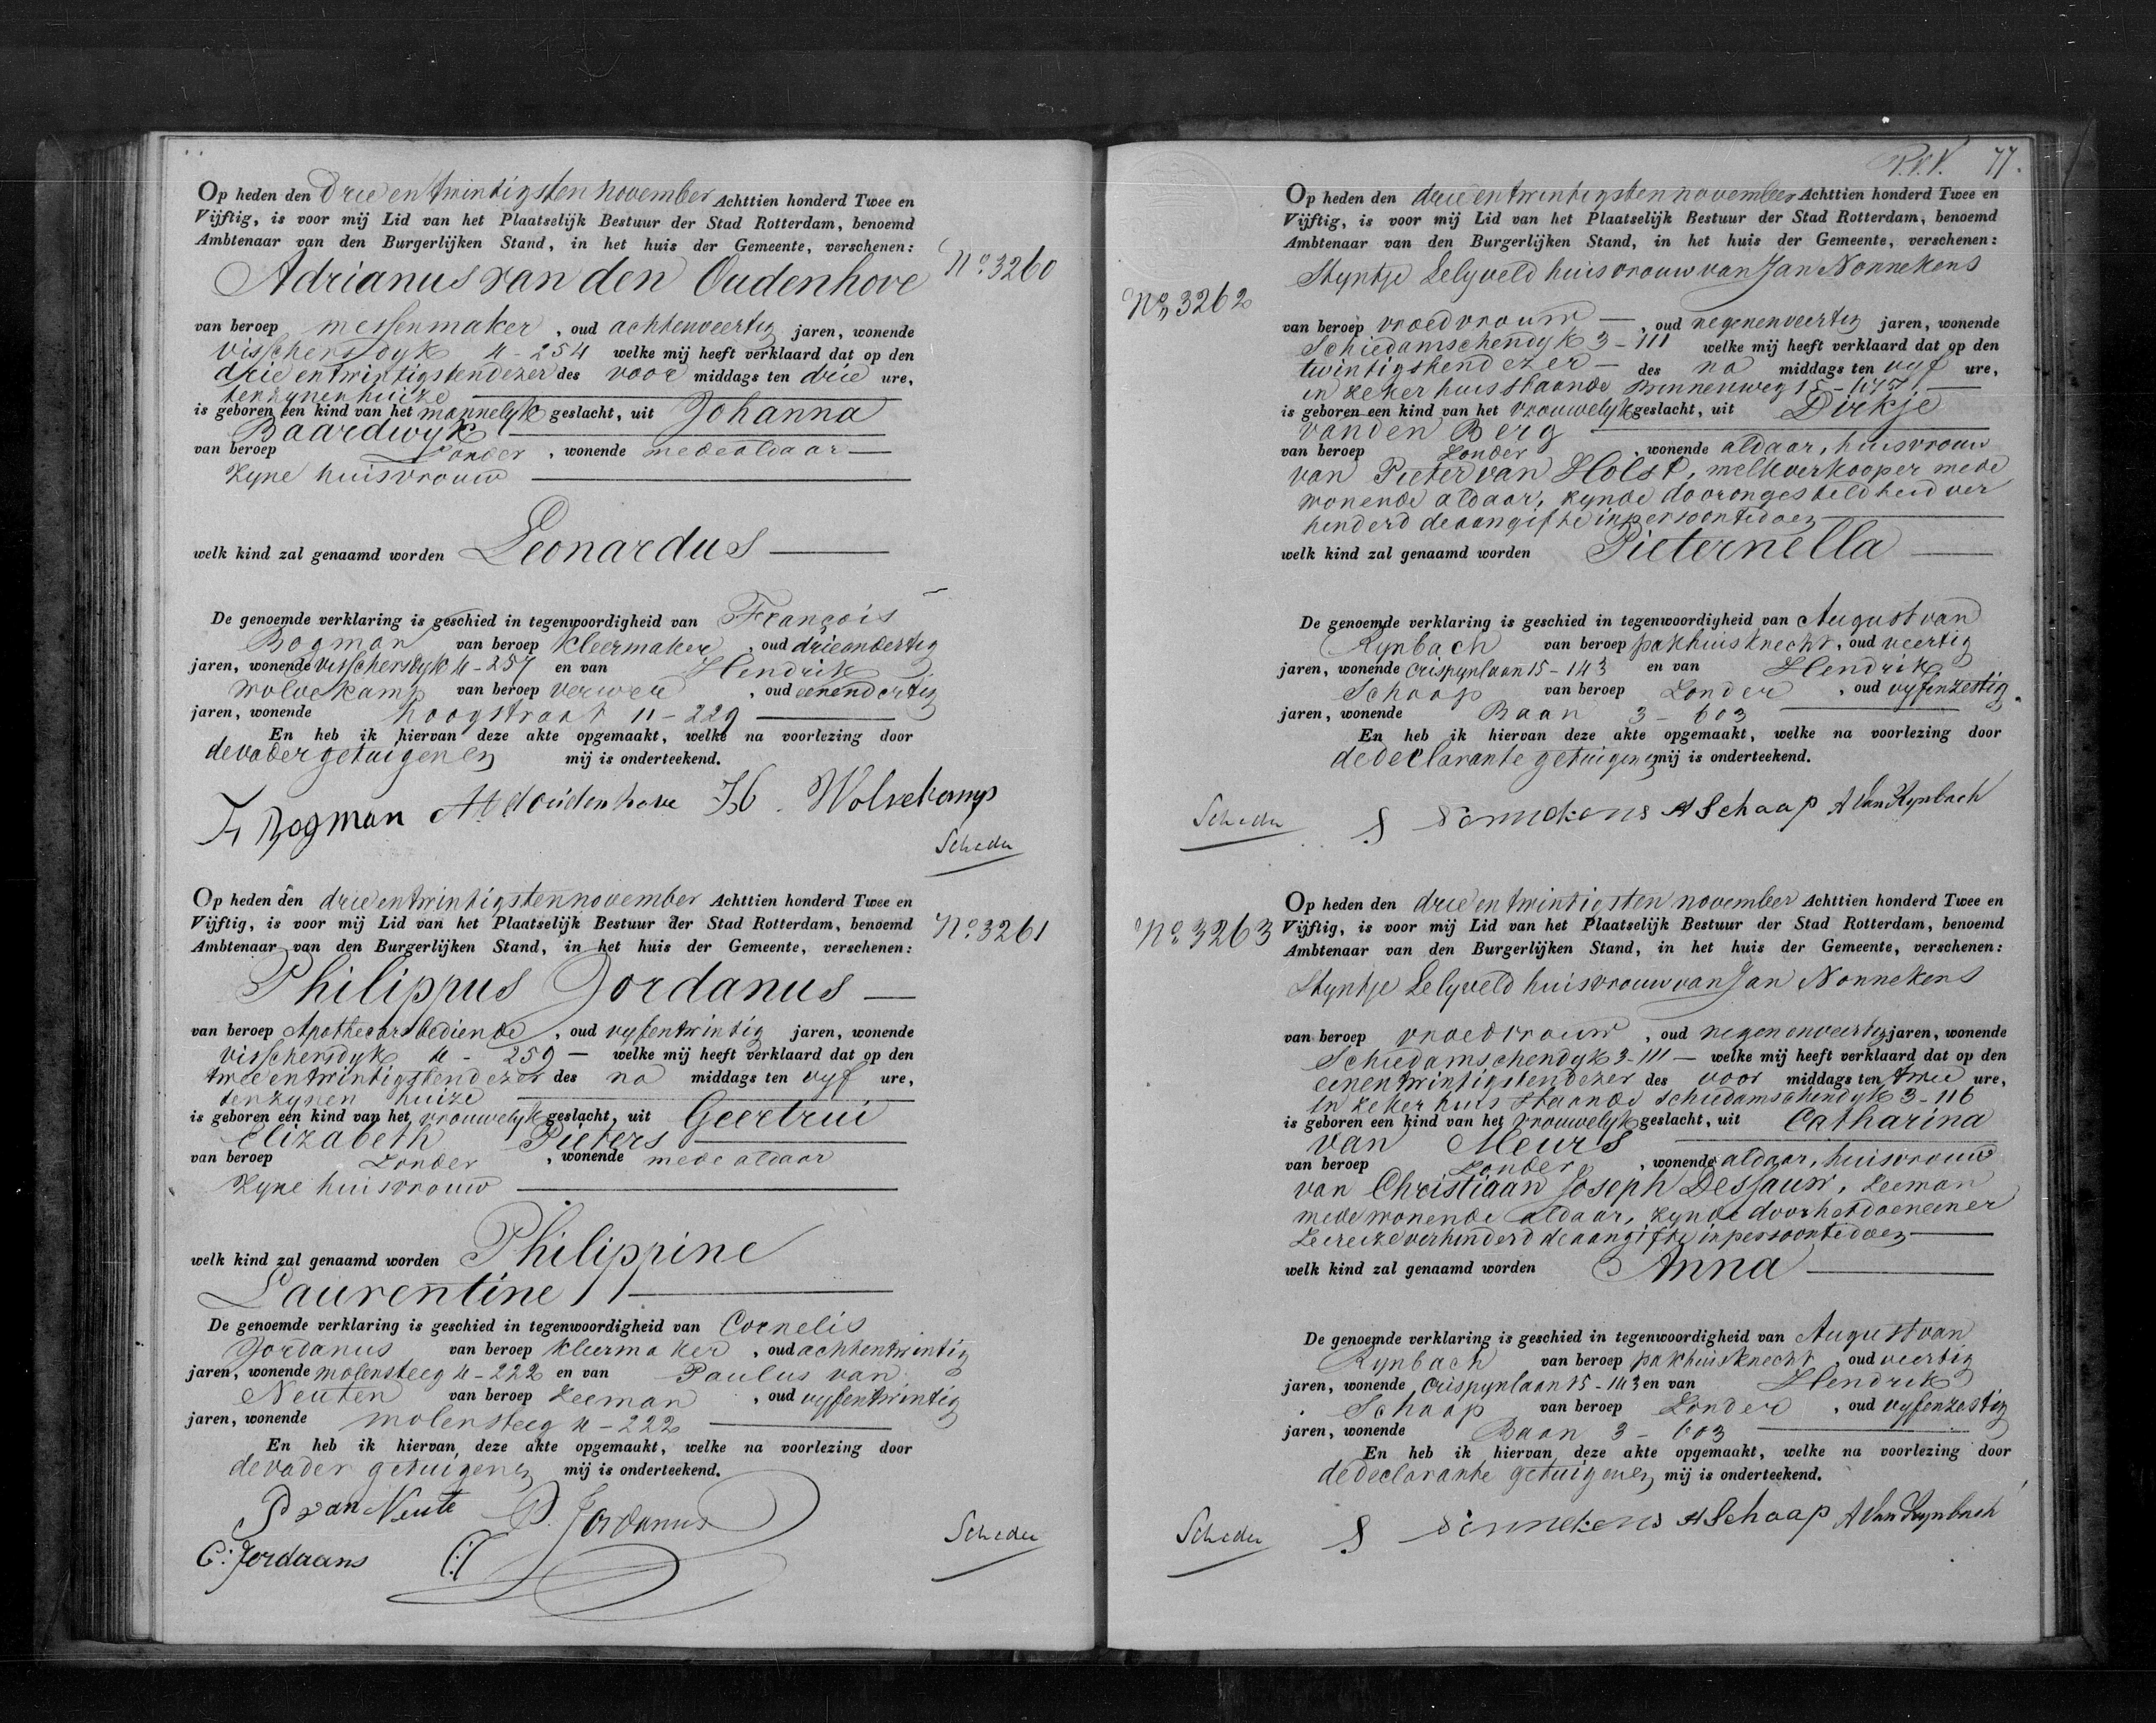 Op heden den drie en twintigsten november Achttien honderd Twee en
Vijftig, is voor mij Lid van het Plaatselijk Bestuur der Stad Rotterdam, benoemd
Ambtenaar van den Burgerlijken Stand, in het huis der Gemeente, verschenen:
Adrianus van den Oudenhove
No. 3260
van beroep messenmaker, oud achtenveertig jaren, wonende
visschersdyk 4-254 welke mij heeft verklaard dat op den
drie en twintigsten dezer des voor middags ten drie ure,
ten zynen huize
is geboren een kind van het mannelyk geslacht, uit Johanna
Baardwyk
van beroep Zonder, wonende mede aldaar
Zyne huisvrouw
welk kind zal genaamd worden Leonardus
De genoemde verklaring is geschied in tegenwoordigheid van François
Bogman van beroep kleermaker, oud drieendertig
jaren, wonende visschersdyk 4-257 en van Hendrik
Wolvekamp van beroep verwer, oud eenendertig
jaren, wonende hoogstraat 11-229
En heb ik hiervan deze akte opgemaakt, welke na voorlezing door
de vader getuigen en mij is onderteekend.
F Bogman A vd oudenhove H. Wolvekamp
Schadee
Op heden den drie en twintigsten november Achttien honderd Twee en
Vijftig, is voor mij Lid van het Plaatselijk Bestuur der Stad Rotterdam, benoemd
Ambtenaar van den Burgerlijken Stand, in het huis der Gemeente, verschenen:
No. 3261
Philippus Jordanus
van beroep Apothecarsbediende, oud vyfentwintig jaren, wonende
visschersdyk 4-259 welke mij heeft verklaard dat op den
twee en twintigsten dezer des na middags ten vyf ure,
ten zynen huize
is geboren een kind van het vrouwelyk geslacht, uit Geertrui
Elizabeth Pieters
van beroep Zonder, wonende mede aldaar
Zyne huisvrouw
welk kind zal genaamd worden Philippine
Laurentine
De genoemde verklaring is geschied in tegenwoordigheid van Cornelis
Jordanus van beroep kleermaker, oud achtentwintig
jaren, wonende molensteeg 4-222 en van Paulus van
Neuten van beroep Zeeman, oud vyfentwintig
jaren, wonende molensteeg 4-222
En heb ik hiervan deze akte opgemaakt, welke na voorlezing door
de vader getuigen en mij is onderteekend.
P van Neute P. Jordanus
C: Jordaans
Schadee
77.
Op heden den drie en twintigsten november Achttien honderd Twee en
Vijftig, is voor mij Lid van het Plaatselijk Bestuur der Stad Rotterdam, benoemd
Ambtenaar van den Burgerlijken Stand, in het huis der Gemeente, verschenen:
Styntje Lelyveld huisvrouw van Jan Nonnekens
No. 3262
van beroep vroedvrouw, oud negenenveertig jaren, wonende
Schiedamschendyk 3-111 welke mij heeft verklaard dat op den
twintigsten dezer des na middags ten vyf ure,
in zeker huis staande Binnenweg 15-
is geboren een kind van het vrouwelyk geslacht, uit Dirkje
van den Berg
van beroep Zonder, wonende aldaar, huisvrouw
van Pieter van Holst, melkverkooper mede
wonende aldaar, zynde door ongesteldheid ver
henderd de aangifte in persoon te doen
welk kind zal genaamd worden Pieternella
De genoemde verklaring is geschied in tegenwoordigheid van August van
Rynbach van beroep pakhuisknecht, oud veertig
jaren, wonende Crispynlaan 15-143 en van Hendrik
Schaap van beroep Zonder, oud vyfenzestig
jaren, wonende Baan 3-603
En heb ik hiervan deze akte opgemaakt, welke na voorlezing door
de declarante getuigen en mij is onderteekend.
S Nonnekens H Schaap A Van Rynbach
Schadee
Op heden den drie en twintigsten november Achttien honderd Twee en
Vijftig, is voor mij Lid van het Plaatselijk Bestuur der Stad Rotterdam, benoemd
Ambtenaar van den Burgerlijken Stand, in het huis der Gemeente, verschenen:
No. 3263
Styntje Lelyveld huisvrouw van Jan Nonnekens
van beroep vroedvrouw, oud negenenveertig jaren, wonende
Schiedamschendyk 3-111 welke mij heeft verklaard dat op den
eenentwintigsten dezer des voor middags ten twee ure,
in zeker huis staande Schiedamschendyk 3-116
is geboren een kind van het vrouwelyk geslacht, uit Catharina
van Meurs
van beroep Zonder, wonende aldaar, huisvrouw
van Christiaan Joseph Dessauw, Zeeman
mede wonende aldaar, zynde door het doen eener
Zeereize verhinderd de aangifte in persoon te doen
welk kind zal genaamd worden Anna
De genoemde verklaring is geschied in tegenwoordigheid van August van
Rynbach van beroep pakhuisknecht, oud veertig
jaren, wonende Crispynlaan 15-143 en van Hendrik
Schaap van beroep Zonder, oud vyfenzestig
jaren, wonende Baan 3-603
En heb ik hiervan deze akte opgemaakt, welke na voorlezing door
de declarante getuigen en mij is onderteekend.
S Nonnekens H Schaap A Van Rynbach
Schadee